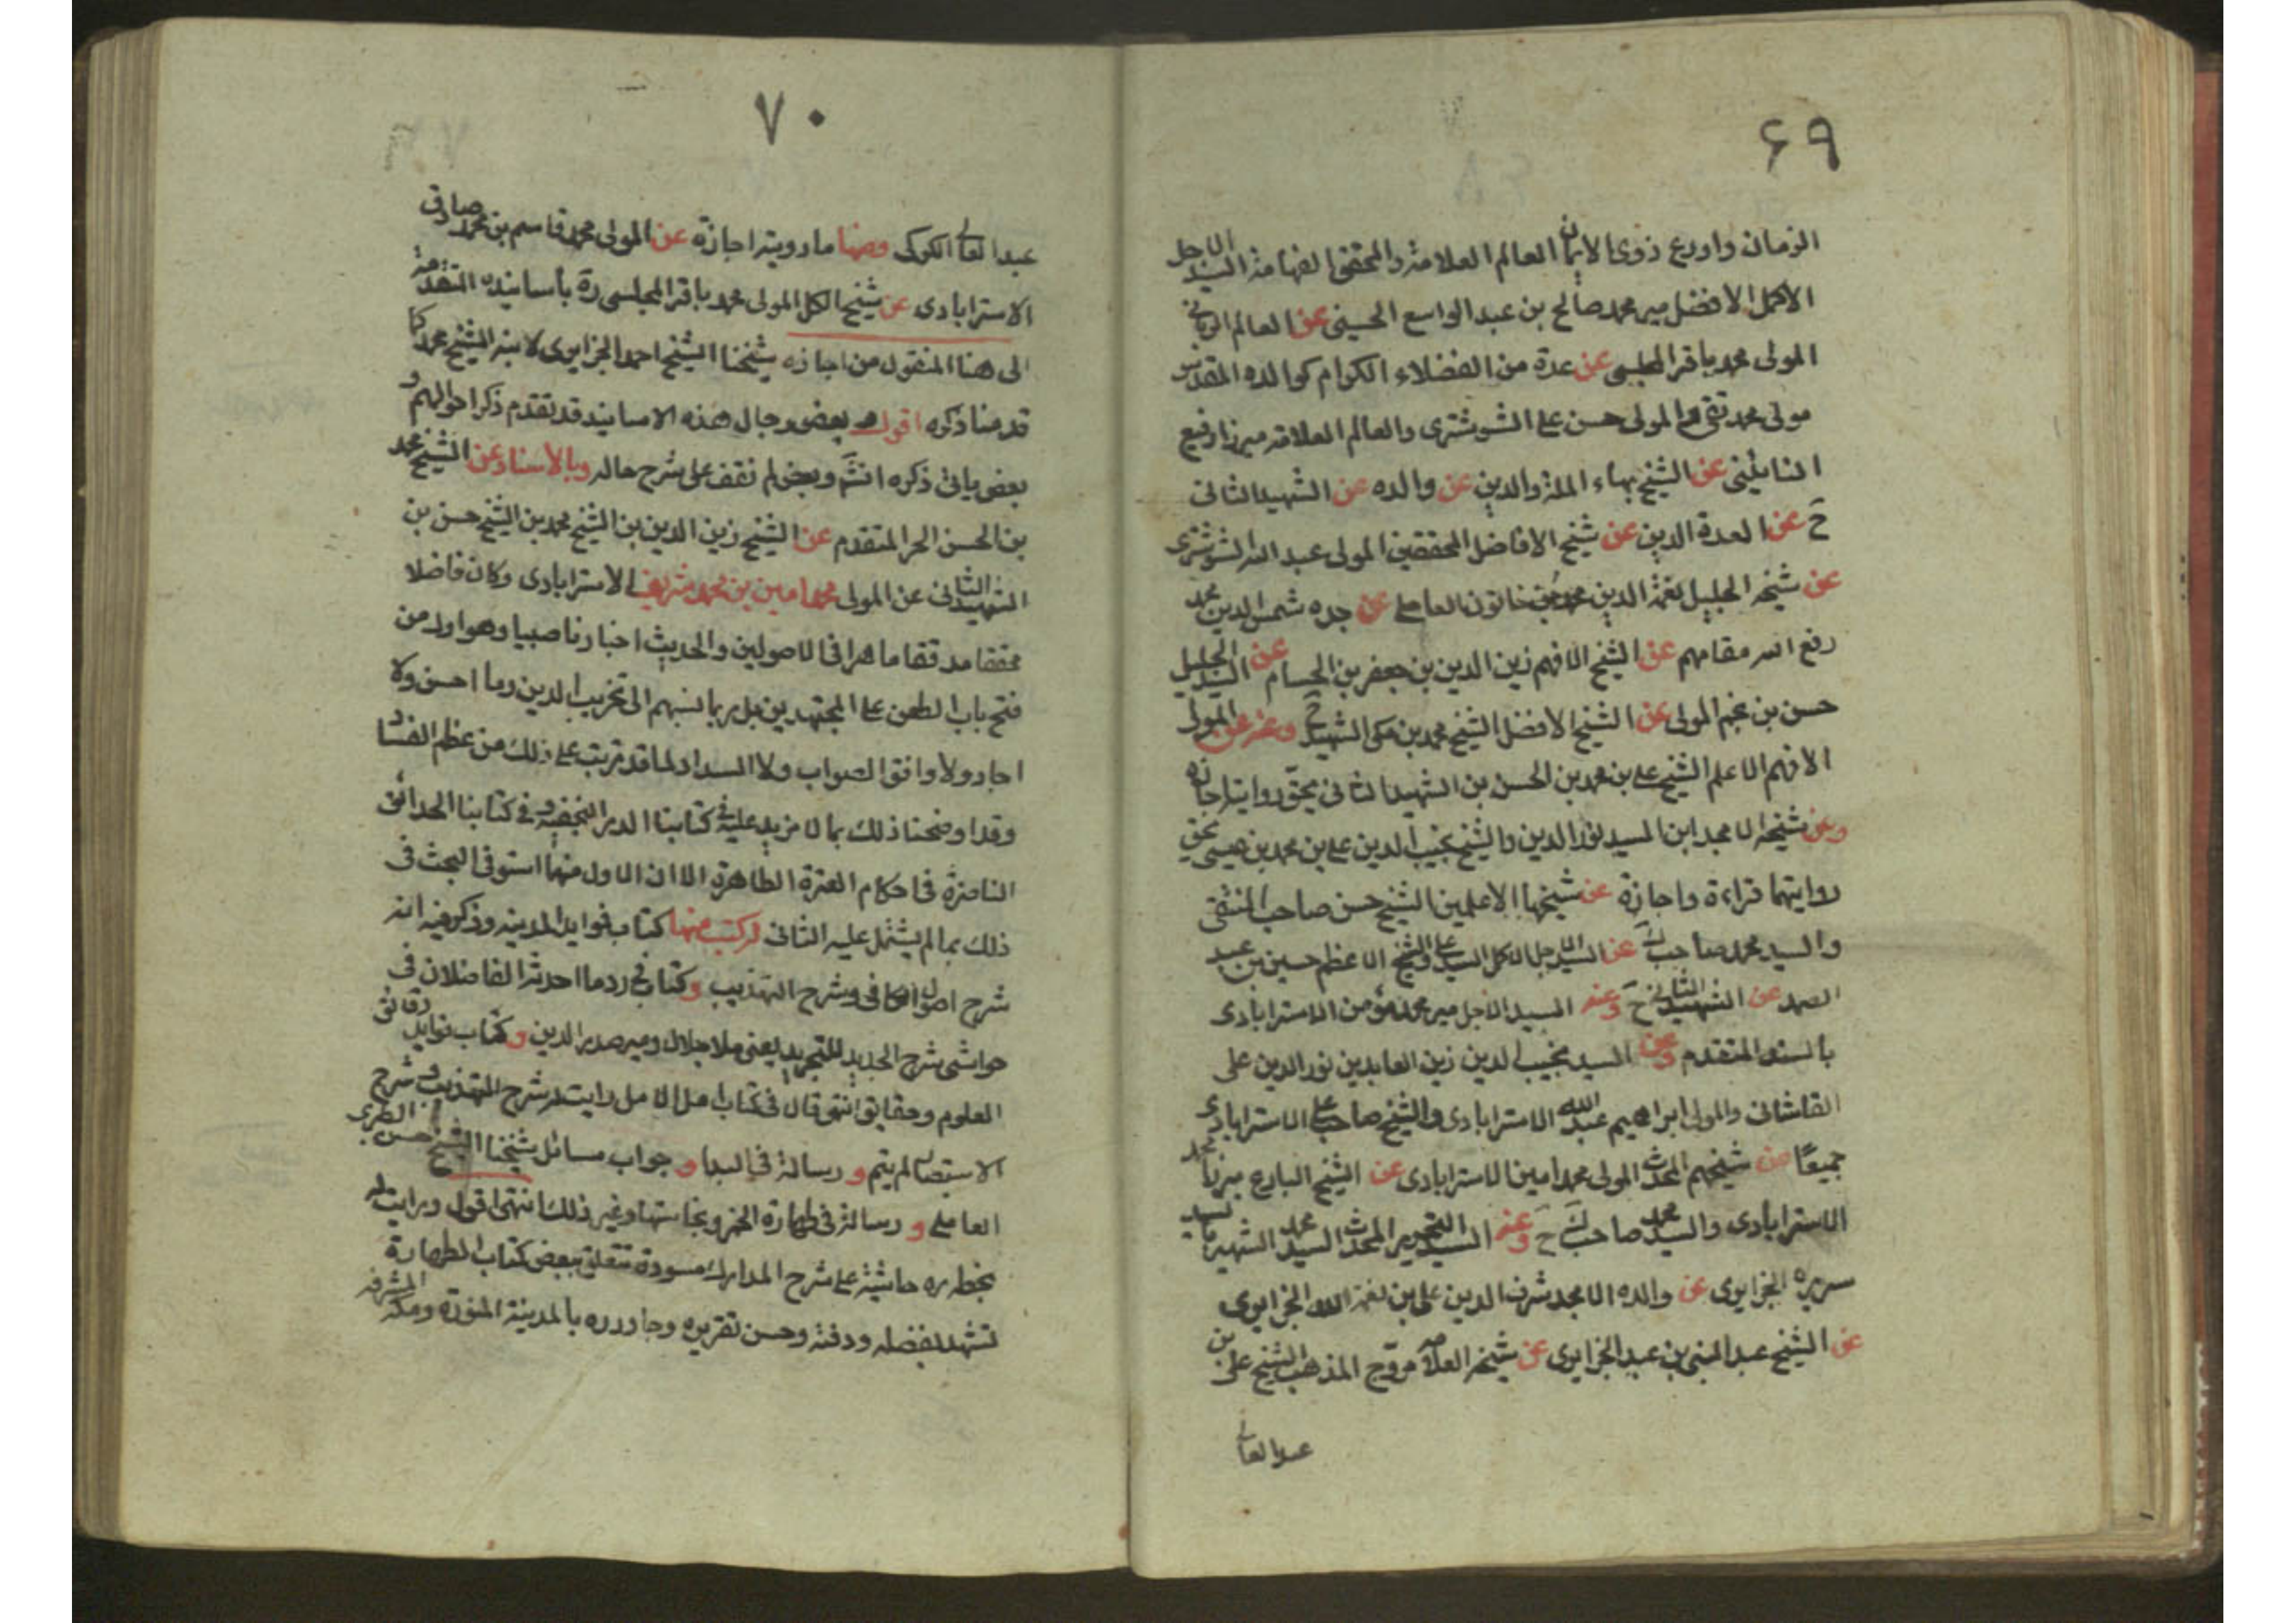 ۶۹
الزمان واورع ذوى الايمان العالم العلامة والمحقق الفهامة السيد الاجل
الاكمل الافضل مير محمد صالح بن عبد الواسع الحسينى عن العالم الربانى
المولى محمد باقر المجلسى عن عدة من الفضلاء الكرام كوالده المقدس
مولى محمد تقى والمولى حسن على الشوشترى والعالم العلامه ميرزا رفيع
النائينى عن الشيخ بهاء الملة والدين عن والده عن الشهيد الثانى
ح عن العدة الدين عن شيخ الافاضل المحققين المولى عبد الله الشوشترى
عن شيخه الجليل نعمة الدين محمد بن خاتون العاملى عن جده شمس الدين محمد
رفع الله مقامهم عن الشيخ الافهم زين الدين بن جعفر بن الحسام عن السيد الجليل
حسن بن نجم المولى عن الشيخ الافضل الشيخ محمد بن مكى الشهيد ح وعنه عن المولى
الافهم الاعلم الشيخ على بن محمد بن الحسن بن الشهيد الثانى بحق روايته اجازه
وعن شيخه الامجد ابن السيد نور الدين والشيخ نجيب الدين على بن محمد بن عيسى بحق
روايتهما قراءة واجازة عن شيخهما الاعلمين الشيخ حسن صاحب المنتقى
والسيد محمد صاحب ك عن السيد الاجل الاكمل السيد على والشيخ الاعظم حسين بن عبد
الصمد عن الشهيد الثانى ح وعنه السيد الاجل مير محمد مؤمن الاسترابادى
بالسند المتقدم وعن السيد نجيب الدين زين العابدين نور الدين على
القاشانى والمولى ابراهيم عبد الله الاسترابادى والشيخ صاحب على الاسترابادى
جميعًا عن شيخهم المحدث المولى محمد امين الاسترابادى عن الشيخ البارع ميرزا محمد
الاسترابادى والسيد محمد صاحب ك ح وعنه السيد النحرير المحدث السيد محمد الشهير بالسيد
ميرزا الجزايرى عن والده الامجد شرف الدين على بن نعمة الله الجزايرى
عن الشيخ عبد النبى بن عبد الجزايرى عن شيخه العلامه مروّج المذهب الشيخ على بن
عبد العالى
۷۰
عبد العالى الكركى ومنها ما رويته اجازة عن المولى محمد قاسم بن محمد صادق
الاسترابادى عن شيخ الكل المولى محمد باقر المجلسى ره بأسانيده المتقدمة
الى هنا المنقول من اجازه شيخنا الشيخ احمد الجزايرى لابنه الشيخ محمد كما
قدمنا ذكره اقول بعض رجال هذه الاسانيد قد تقدم ذكر احوالهم و
بعض ياتى ذكره انشم وبعض لم نقف على شرح حاله وبالاسناد عن الشيخ محمد
بن الحسن الحر المتقدم عن الشيخ زين الدين بن الشيخ محمد بن الشيخ حسن بن
الشهيد الثانى عن المولى محمد امين بن محمد شريف الاسترابادى وكان فاضلا
محققا مدققا ماهرا فى الاصولين والحديث اخباريا صبيا وهو اول من
فتح باب الطعن على المجتهدين بل ربما نسبهم الى تخريب الدين وما احسن ولا
اجاد ولا وافق الصواب ولا السداد لما قد ترتب على ذلك من عظم الفساد
وقد اوضحنا ذلك بما لا مزيد عليه فى كتابنا الدرر النجفيه وفى كتابنا الحدائق
الناضرة فى احكام العترة الطاهرة الا ان الاول منهما استوفى البحث فى
ذلك بما لم يشتمل عليه الثانى له كتب منها كتاب فوايد المدينه وذكر فيه انه
شرح اصول الكافى وشرح التهذيب وكتاب فى رد ما احدثه الفاضلان فى
حواشى شرح الجديد للتجريد يعنى ملا جلال ومير صدر الدين وكتاب فوايد رقائق
العلوم وحقايق انتهى قال فى كتاب امل الامل رايت له شرح التهذيب وشرح
الاستبصار لم يتم ورسالة فى البدا وجواب مسائل شيخنا الشيخ حسن الظهرى
العاملى ورسالة فى طهارة الخمر ونجاستها وغير ذلك انتهى اقول ورايت له
بخطه ره حاشية على شرح المدارك مسودة تتعلق ببعض كتاب الطهارة
تشهد بفضله ودقته وحسن تقريره وجاور ره بالمدينة المنوره ومكة المشرفه